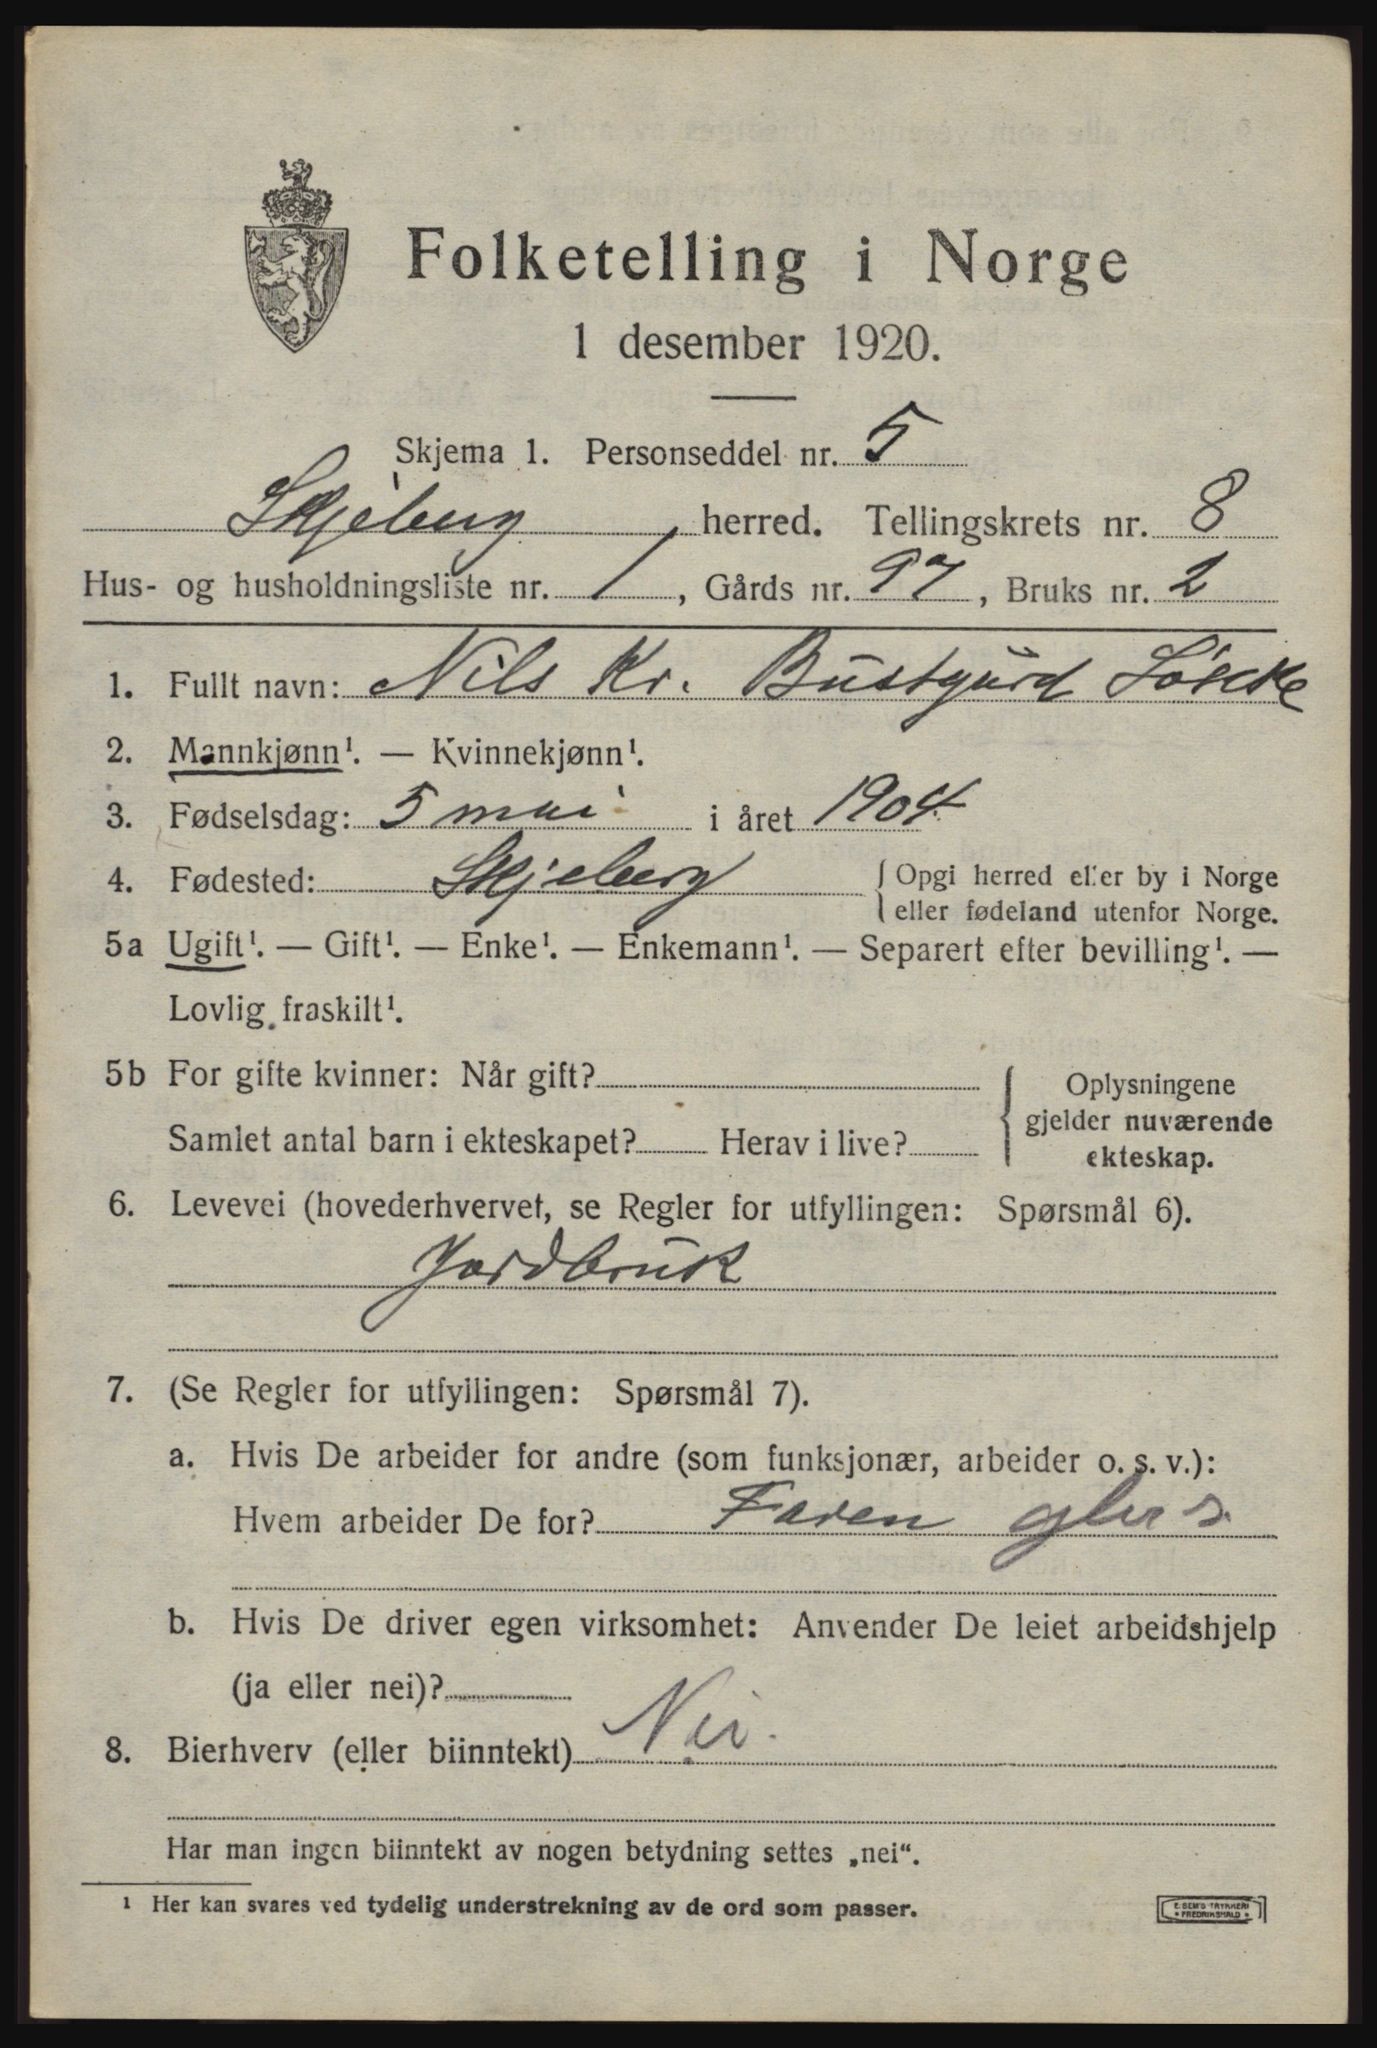 Folketelling i Norge
1 desember 1920.
Skjema 1. Personseddel nr. 5
Skjeberg herred. Tellingskrets nr. 8
Hus- og husholdningsliste nr. 1, Gårds nr. 97, Bruks nr. 2
1. Fullt navn: Nils Kr. Bustgård
2. Mannkjønn¹. — Kvinnekjønn¹.
3. Fødselsdag: 5 mai i året 1904
4. Fødested: Skjeberg { Opgi herred eller by i Norge
eller fødeland utenfor Norge.
5a Ugift¹. — Gift¹. — Enke¹. — Enkemann¹. — Separert efter bevilling¹. —
Lovlig fraskilt¹.
5b For gifte kvinner: Når gift? { Oplysningene
gjelder nuværende
Samlet antal barn i ekteskapet? Herav i live?
ekteskap.
6. Levevei (hovederhvervet, se Regler for utfyllingen: Spørsmål 6).
Jordbruk
7. (Se Regler for utfyllingen: Spørsmål 7).
a. Hvis De arbeider for andre (som funksjonær, arbeider o. s. v.):
Hvem arbeider De for? Faren
b. Hvis De driver egen virksomhet: Anvender De leiet arbeidshjelp
(ja eller nei)?
8. Bierhverv (eller biinntekt) Nei.
Har man ingen biinntekt av nogen betydning settes „nei“.
¹ Her kan svares ved tydelig understrekning av de ord som passer.
E. SEM'S TRYKKERI
• FREDRIKSHALD •